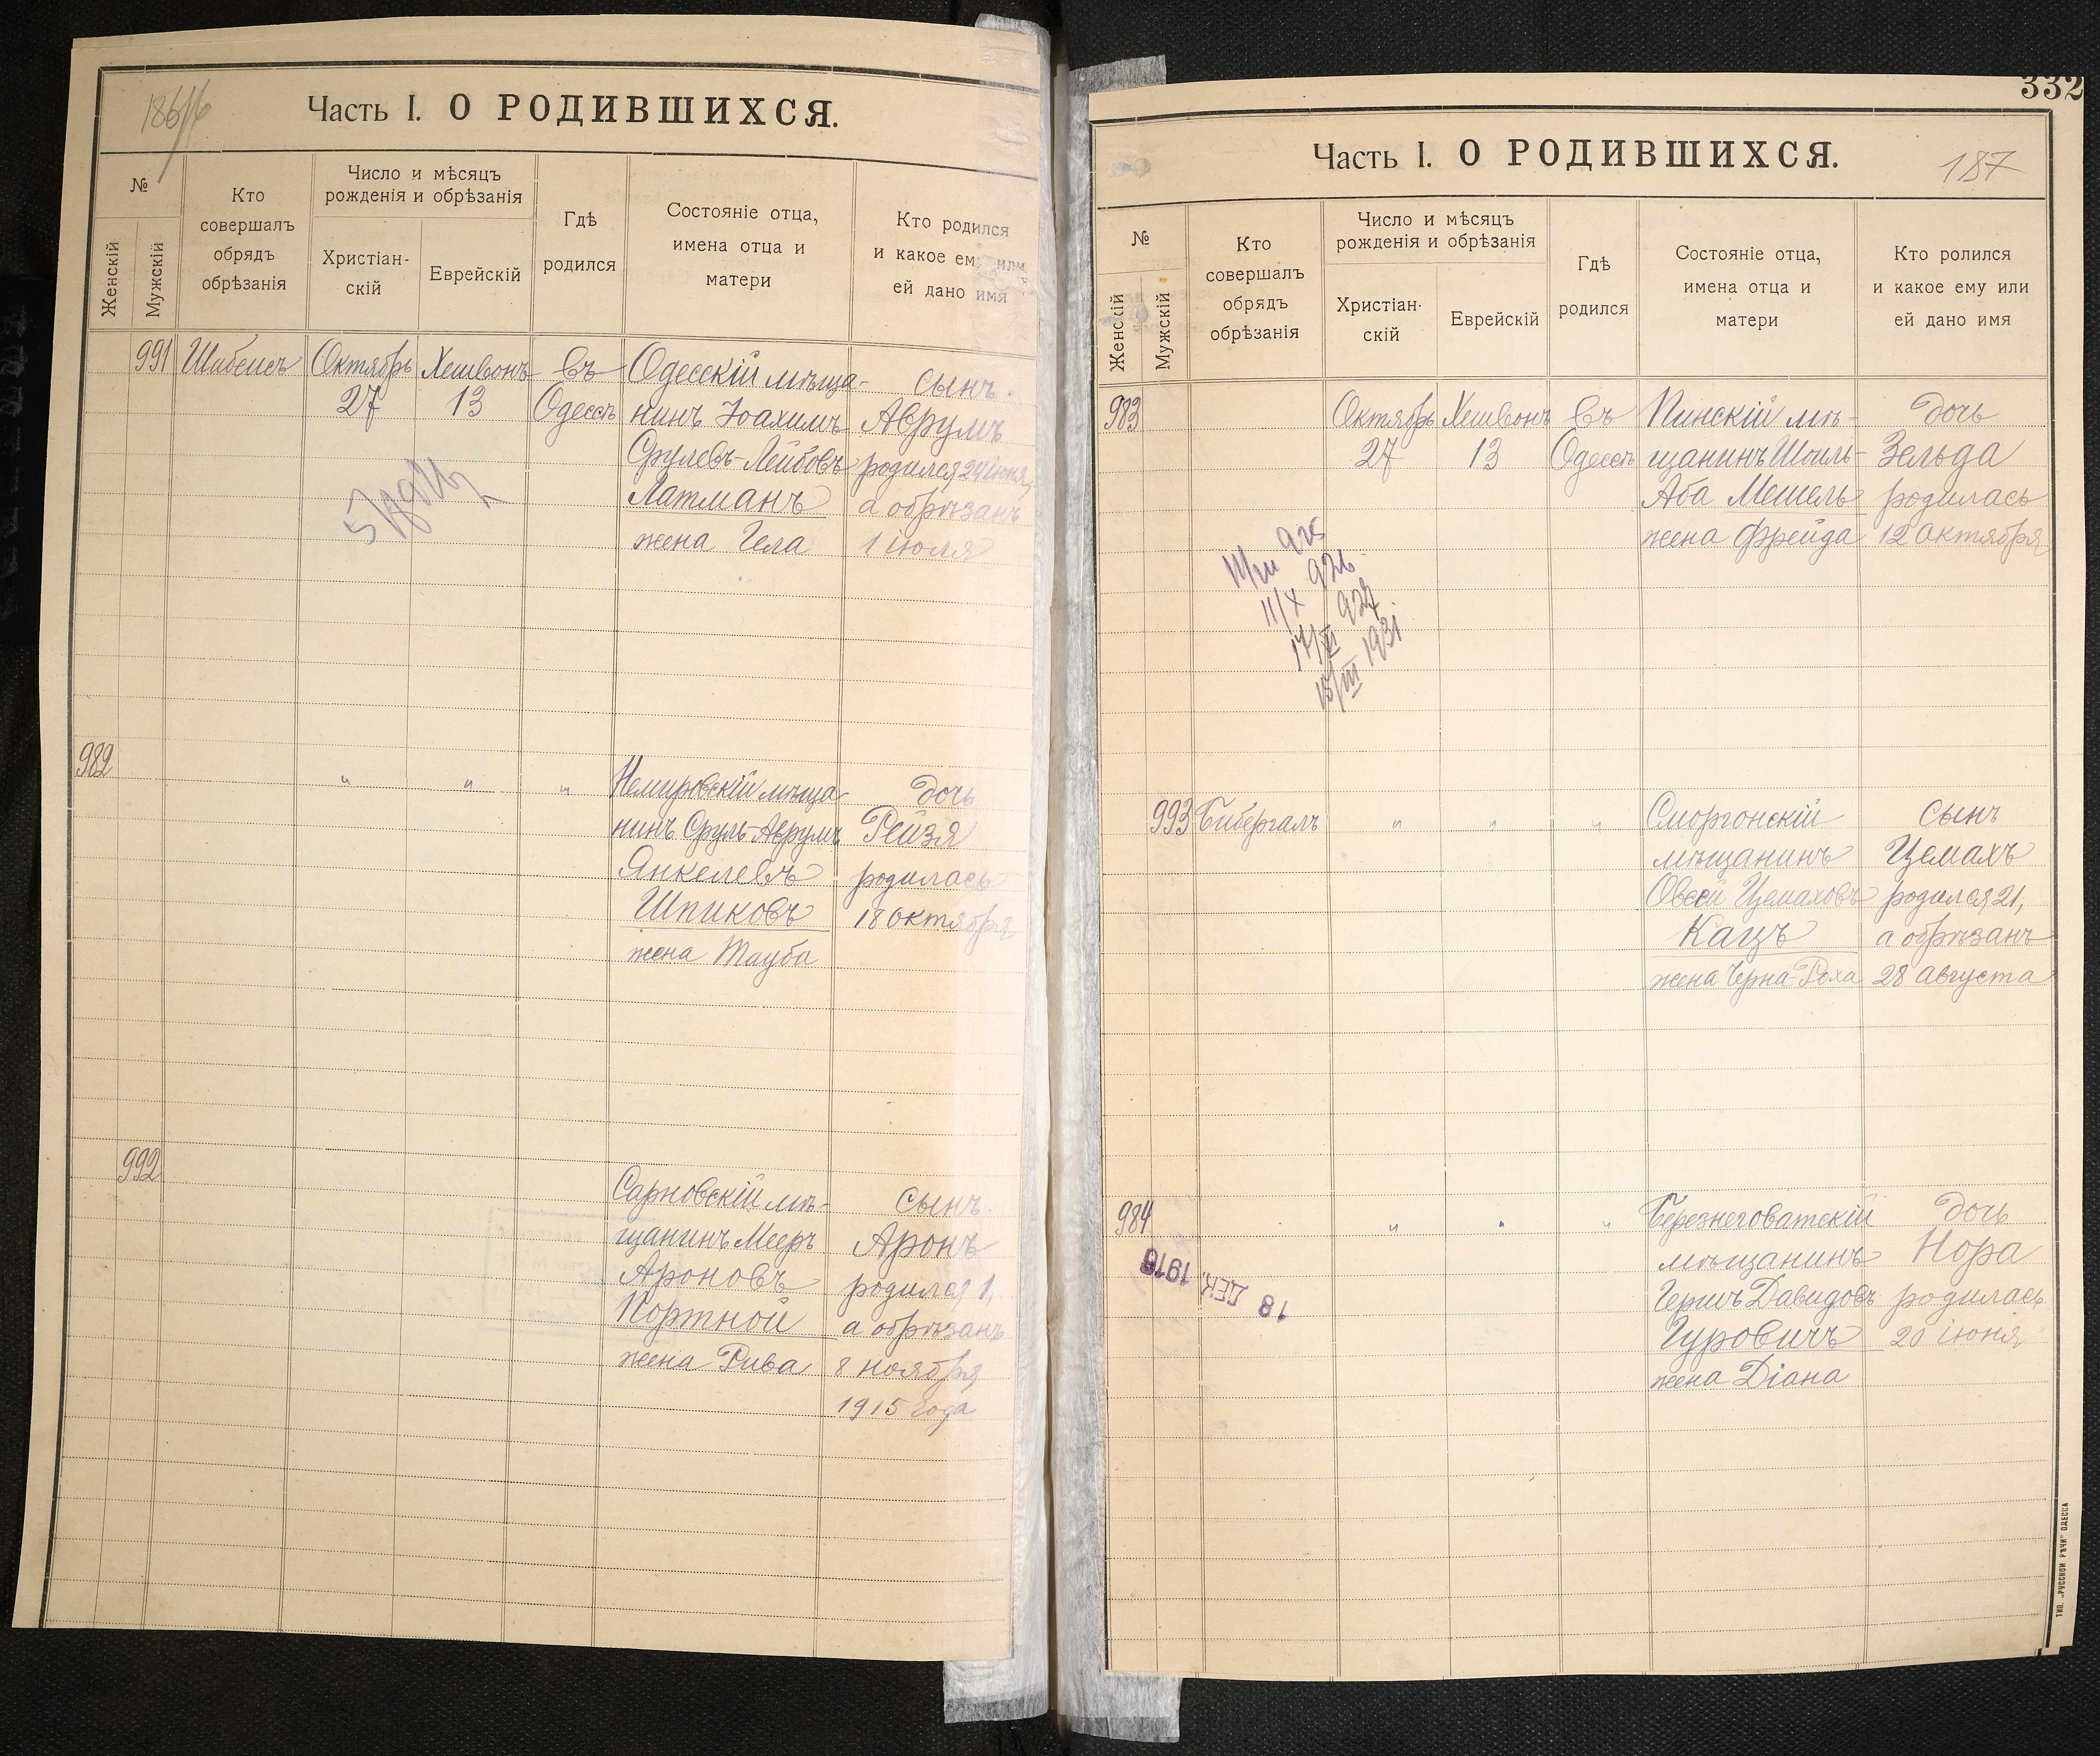 186
Часть I. О РОДИВШИХСЯ.
№
Женскій
Мужскій
Кто
совершалъ
обрядъ
обрѣзанія
Число и мѣсяцъ
рожденія и обрѣзанія
Христіан-
скій
Еврейскій
Гдѣ
родился
Состояніе отца,
имена отца и
матери
Кто родился
и какое ему или
ей дано имя
991 Шабсисъ Октябрь Хешвонъ въ Одесскій мѣща- сынъ
27 13 Одессѣ нинъ Іоахимъ Аврумъ
Срулевъ-Лейбовъ родился 24 іюня,
Латманъ а обрѣзанъ
жена Гела 1 іюля
982 " " " Немировскій мѣща- дочь
нинъ Сруль-Аврумъ Рейзя
Янкелевъ родилась
Шпиковъ 18 октября
жена Тауба
992 Сарновскій мѣ- сынъ
щанинъ Мееръ Аронъ
Ароновъ родился 1,
Портной а обрѣзанъ
жена Рива 8 ноября
1915 года
332
Часть I. О РОДИВШИХСЯ.
187
№
Женскій
Мужскій
Кто
совершалъ
обрядъ
обрѣзанія
Число и мѣсяцъ
рожденія и обрѣзанія
Христіан-
скій
Еврейскій
Гдѣ
родился
Состояніе отца,
имена отца и
матери
Кто ролился
и какое ему или
ей дано имя
983 Октябрь Хешвонъ въ Пинскій мѣ- дочь
27 13 Одессѣ щанинъ Шоиль- Зельда
Аба Мешель родилась
жена Фрейда 12 октября
925
11/X 926
17/XI 927
15/III 1931
993 Бибергалъ " " " Сморгонскій сынъ
мѣщанинъ Цемахъ
Овсей Цемаховъ родился 21,
Кацъ а обрѣзанъ
жена Черна-Роха 28 августа
984 " " " Березнеговатскій дочь
мѣщанинъ Нора
Гершъ Давидовъ родилась
Гуровичъ 20 іюня
жена Діана
18 ДЕК. 1916
ТИП. „РУССКОЙ РѢЧИ" ОДЕССА